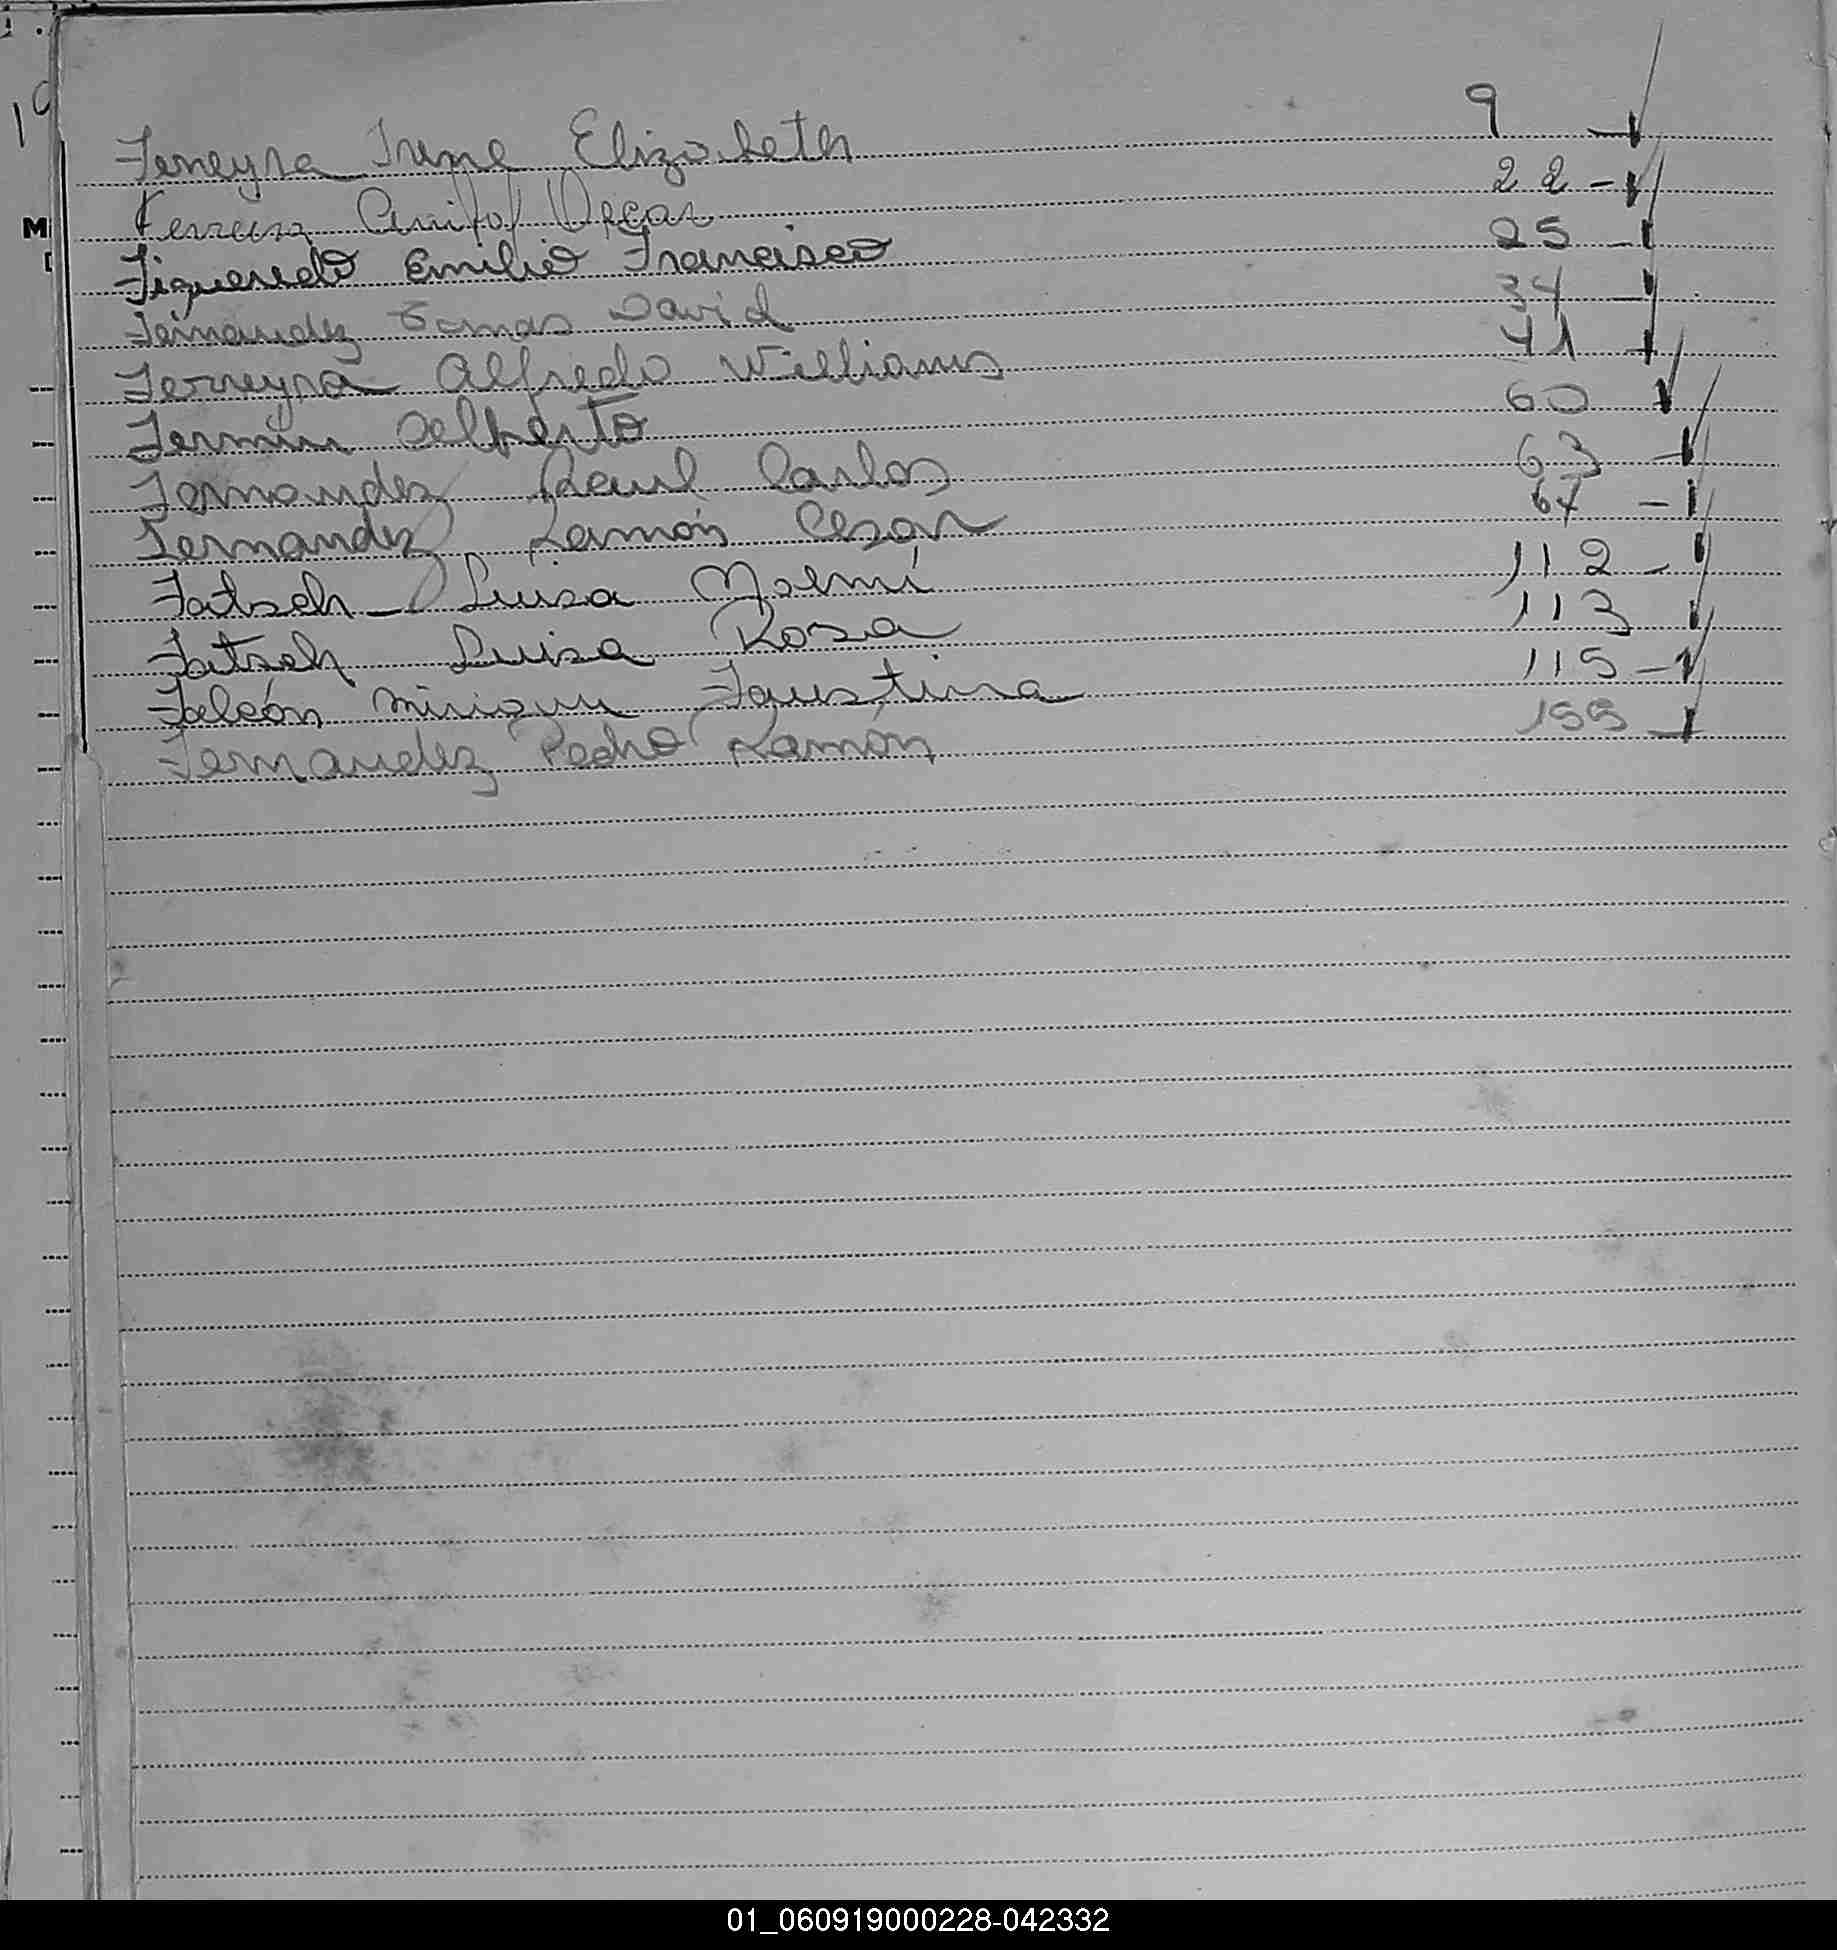 Ferreyra Irene Elizabeth 9
Ferreira Oscar 22 -
Figueredo Emilio Francisco 25 -
Fernandez Tomas David 34 -
Ferreyra Alfredo Williams 41 -
Fermin Alberto 60
Fernandez Raul Carlos 63 -
Fernandez Ramón Cesar 67 -
Fatsch - Luisa Noemí 112 -
Fatsch Luisa Rosa 113
Falcón Mirian Faustina 115 -
Fernandez Pedro Ramón 155 -
M
01_060919000228-042332